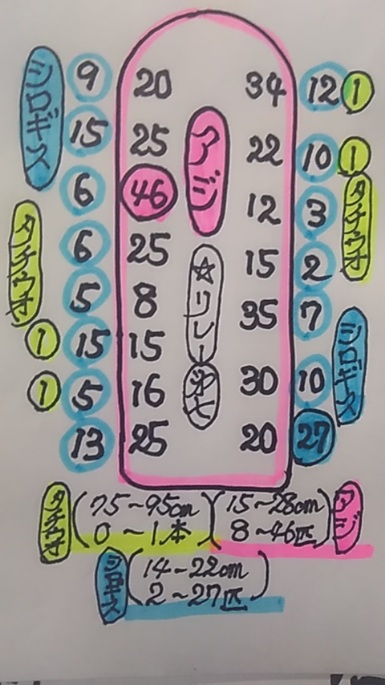 シロギス
タチウオ
アジ
☆リレー第七
タチウオ
シロギス
9 20 34 12 1
15 25 22 10 1
6 46 12 3
6 25 15 2
5 8 35 7
1 15 15
1 5 16 30 10
13 25 20 27
タチウオ (75~95cm 0~1本)
(15~28cm 8~46匹) アジ
シロギス (14~22cm 2~27匹)